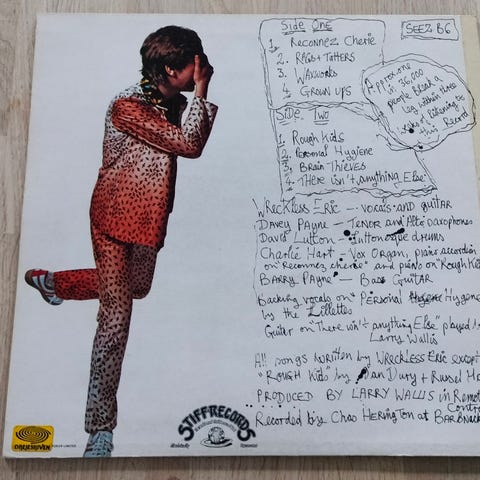 Side One
1. Reconnez Cherie
2. Rags + Tatters
3. Waxworks
4. Grown Ups
SEEZ B6
Approx. one
in 36,000
people break a
leg within three
weeks of listening to
this Record
Side Two
1. Rough Kids
2. Personal Hygiene
3. Brain Thieves
4. There isn't anything Else
Wreckless Eric – vocals and guitar
Davey Payne – Tenor and Alto saxophones
David Lutton – Luttonesque drums
Charlie Hart – Vox Organ, piano accordion
on "Reconnez cherie" and piano on "Rough Kids
Barry Payne – Bass Guitar
Backing vocals on Personal Hygene
by the Lillettes
Guitar on "There isn't anything Else" played by
Larry Wallis
All songs written by Wreckless Eric except
"Rough Kids" by Ian Dury + Russel Ha
PRODUCED BY LARRY WALLIS in Remote
Contro
Recorded by Chas Herington at BARBNack
STIFF RECORDS